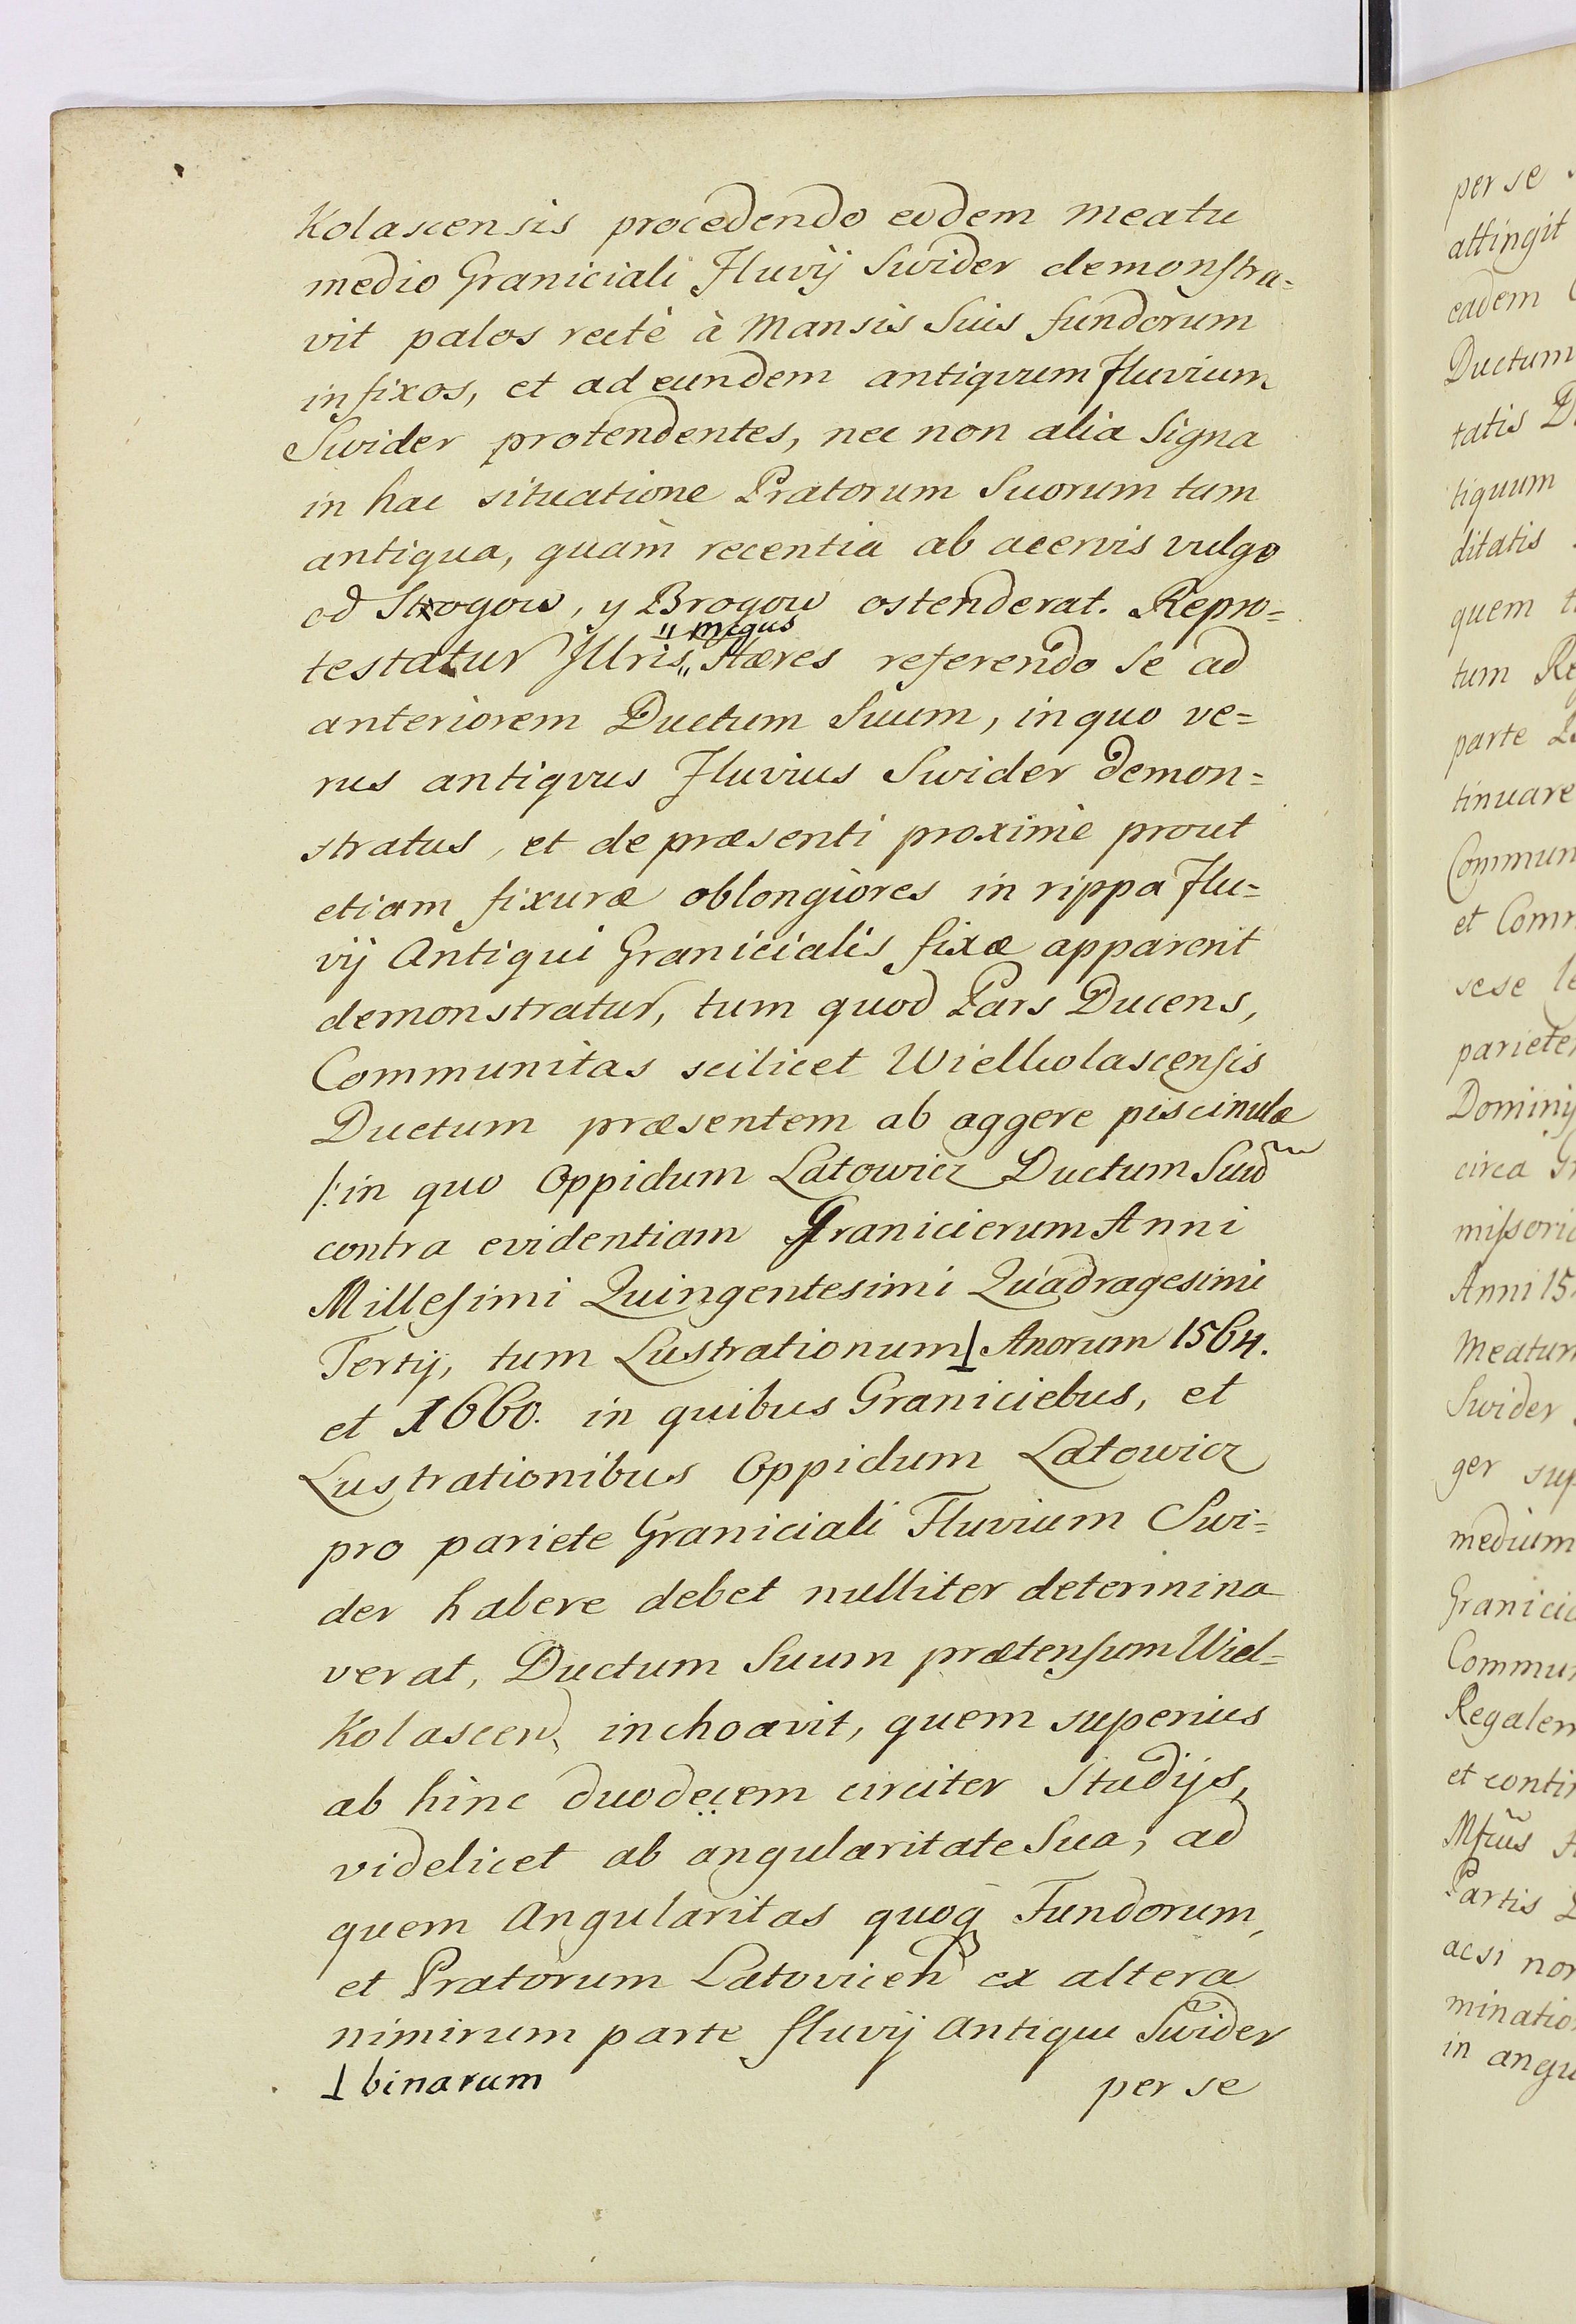 Kolascensis procedendo eodem meatu
medio Graniciali Fluvij Swider demonstra=
vit palos rectè à Mansis Suis fundorum
infixos, et ad eundem antiqvum Fluvium
Swider protendentes, nec non alia Signa
in hac situatione Pratorum Suorum tam
antiqua, quàm recentia ab acervis vulgo
od Stogow, y Brogow ostenderat. Repro=
" Mgcus
testatur Jllris " Hæres referendo se ad
anteriorem Ductum Suum, in quo ve=
rus antiqvus Fluvius Swider demon=
stratus, et de præsenti proximè prout
etiam fixuræ oblongiores in rippa Flu=
vij Antiqui Granicialis fixæ apparent
demonstratur, tum quod Pars Ducens,
Communitas scilicet Wielkolascensis
Ductum præsentem ab aggere piscinulæ
/: in quo Oppidum Latowicz Ductum Suũ
contra evidentiam Granicierum Anni
Millesimi Quingentesimi Quadragesimi
Tertij, tum Lustrationum ⊥ Anorum 1564.
et 1660. in quibus Graniciebus, et
Lustrationibus Oppidum Latowicz
pro pariete Graniciali Fluvium Swi=
der habere debet nulliter determina
verat, Ductum Suum prætensum Wiel=
Kolascen inchoavit, quem superius
ab hinc duodecem circiter Stadijs,
videlicet ab angularitate Sua, ad
quem Angularitas quoq Fundorum,
et Pratorum Latovicen ex altera
nimirum parte fluvij Antiqui Swider
⊥ binarum
per se
per se
attingit
eadem
Ductum
tatis
tiquum
ditatis
quem
tum
parte
tinuare
Commun
et Com
sese
pariete
Dominij
circa
missori
Anni 15
Meatum
Swider
ger sup
medium
Granici
Commu
Regalem
et conti
Mfcus
Partis
acsi non
minatio
in angu